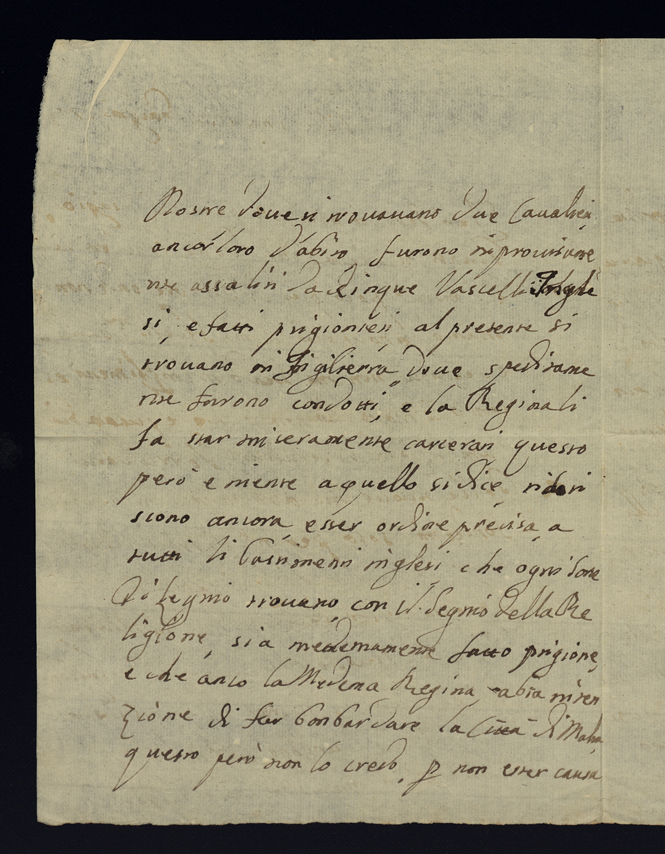 Nostre doue si trouauano due Caualieri
ancor loro d'abito furono inprouisame
nte assaliti da Cinque Vascelli Ingle
si, e fatti prigionieri al presente si
trouano in Ingilterra doue speditame
nte furono condotti, e la Regina li
fa star miseramente carcerati questo
però e niente a quello si dice, riferi
scono ancora esser ordine precisa, a
tutti li bastimenti inglesi che ogni sorte
di Legnio trouano con il Segnio della Re
ligione, sia medemamente fatto prigione,
e che anco la Medema Regina abia inten
zione di far bonbardare la Città di Malta
questo però non lo credo, p non esser causa